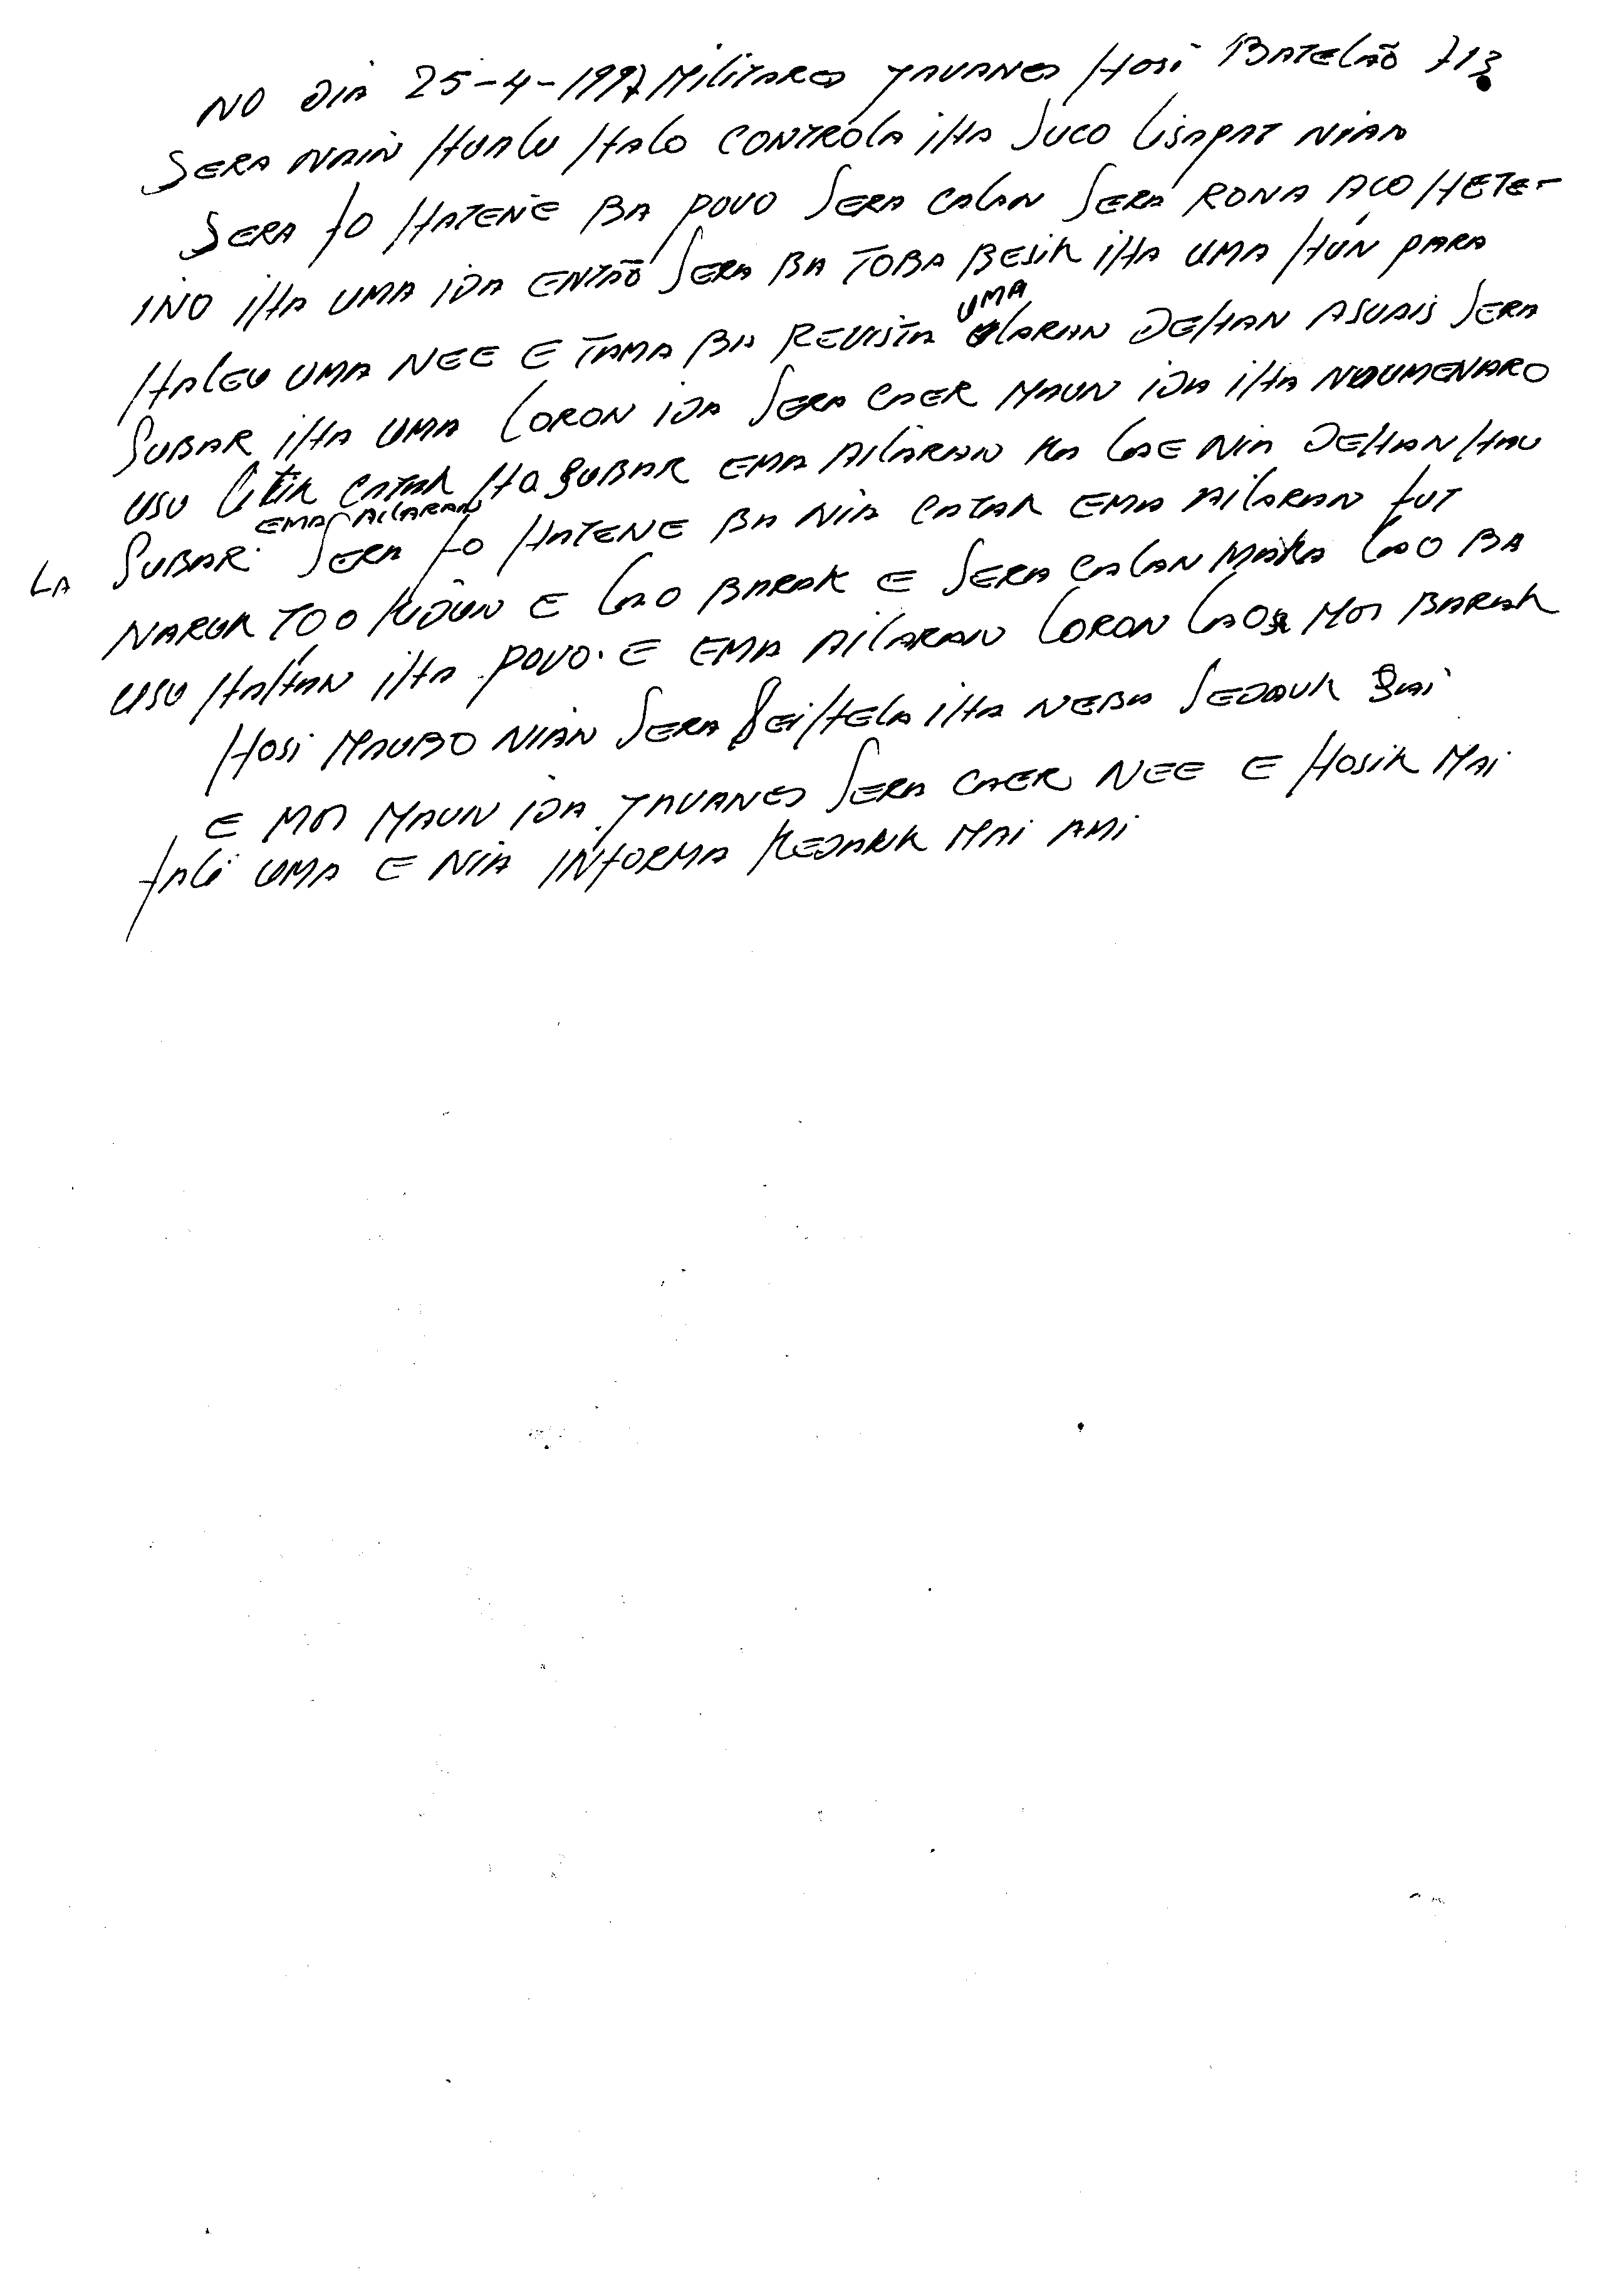 NO DIA 25-4-1997 MILITARES JAVANES HOSI BATELÃO 713
SERA NAIN HUALU HALO CONTROLA IHA SUCO LISAPAT NIAN
SERA FO HATENE BA POVO SERA CALAN SERA RONA ACO HETE-
INO IHA UMA IDA ENTÃO SERA BA TOBA BESIK IHA UMA HUN PARA
HALEU UMA NEE E TAMA BA REVISTA UMA LARAN DEHAN ASUAIS SERA
SUBAR IHA UMA LORON IDA SERA CAER MAUN IDA IHA NUUMENARO
USU LITIK CATAK HA SUBAR EMA AILARAN KA LAE NIA DEHAN HAU
LA SUBAR EMA AILARAN SERA FO HATENE BA NIA CATAK EMA AILARAN FUT
NARUK TOO KIDUN E LAO BARAK E SERA CALAN MAKA LAO BA
USU HAHAN IHA POVO. E EMA AILARAN LORON LAO MOS BARAK
HOSI MAUBO NIAN SERA SEI HELA IHA NEBA SEDAUK SAI
E MOS MAUN IDA JAVANES SERA CAER NEE E HOSIK MAI
FALI UMA E NIA INFORMA KEDARK MAI AMI